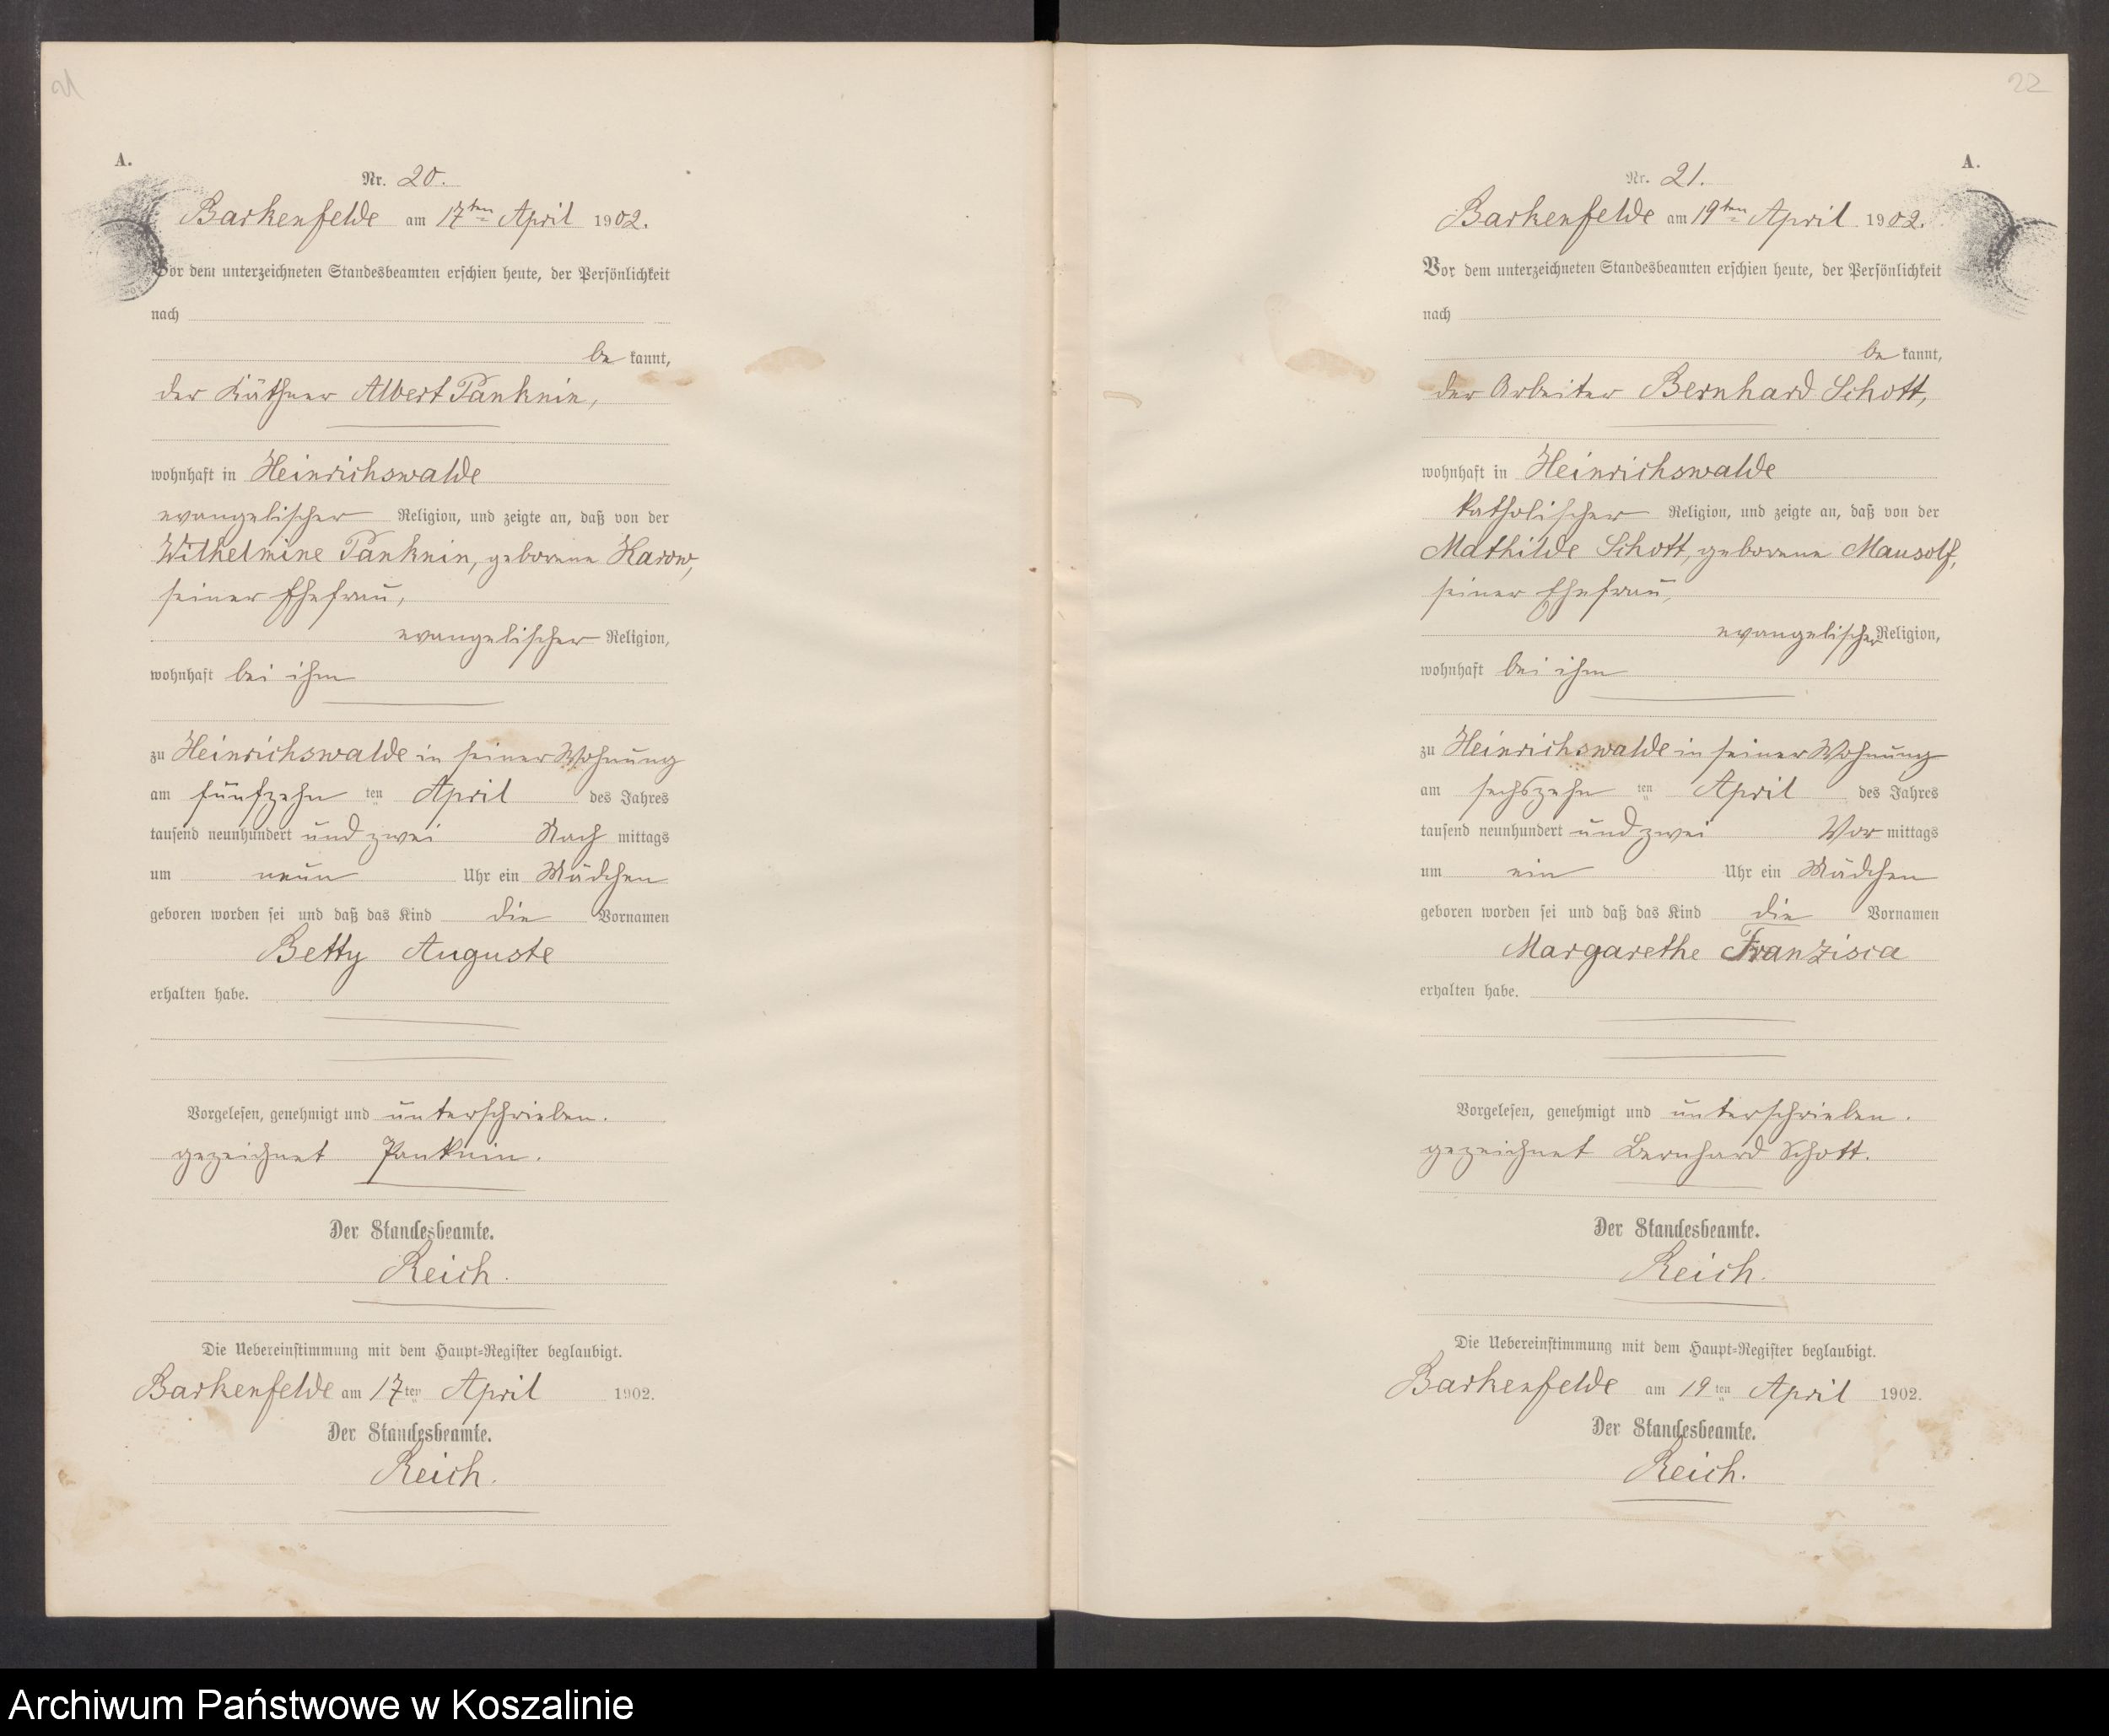 21
A.
Nr. 20.
Barkenfelde am 17ten April 1902.
Vor dem unterzeichneten Standesbeamten erschien heute, der Persönlichkeit
nach
be kannt,
der Käthner Albert Panknin,
wohnhaft in Heinrichswalde
evangelischer Religion, und zeigte an, daß von der
Wilhelmine Panknin, geborene Karow,
seiner Ehefrau,
evangelischer Religion,
wohnhaft bei ihm
zu Heinrichswalde in seiner Wohnung
am fünfzehn ten April des Jahres
tausend neunhundert und zwei Nach mittags
um neun Uhr ein Mädchen
geboren worden sei und daß das Kind die Vornamen
Betty Auguste
erhalten habe.
Vorgelesen, genehmigt und unterschrieben.
gezeichnet Panknin.
Der Standesbeamte.
Reich.
Die Uebereinstimmung mit dem Haupt-Register beglaubigt.
Barkenfelde am 17ten April 1902.
Der Standesbeamte.
Reich.
22
A.
Nr. 21.
Barkenfelde am 19ten April 1902.
Vor dem unterzeichneten Standesbeamten erschien heute, der Persönlichkeit
nach
be kannt,
der Arbeiter Bernhard Schott,
wohnhaft in Heinrichswalde
katholischer Religion, und zeigte an, daß von der
Mathilde Schott, geborene Mausolf,
seiner Ehefrau,
evangelischer Religion,
wohnhaft bei ihm
zu Heinrichswalde in seiner Wohnung
am sechszehn ten April des Jahres
tausend neunhundert und zwei Vor mittags
um ein Uhr ein Mädchen
geboren worden sei und daß das Kind die Vornamen
Margarethe Franzisca
erhalten habe.
Vorgelesen, genehmigt und unterschrieben.
gezeichnet Bernhard Schott.
Der Standesbeamte.
Reich.
Die Uebereinstimmung mit dem Haupt-Register beglaubigt.
Barkenfelde am 19ten April 1902.
Der Standesbeamte.
Reich.
Archiwum Państwowe w Koszalinie